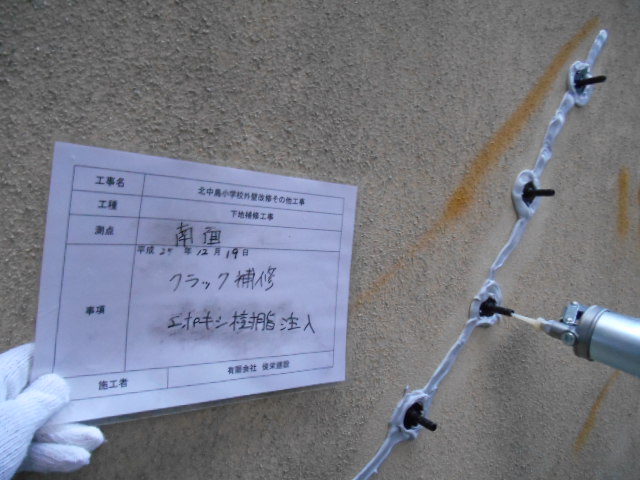 工事名 北中島小学校外壁改修その他工事
工種 下地補修工事
測点 南面
平成 25 年 12 月 19 日
事項 クラック補修
エポキシ樹脂注入
施工者 有限会社 俊栄建設